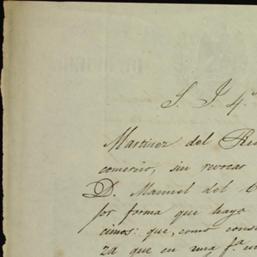 S. J. 4.
Martinez del Rio
comercio, sin revocar
D. Manuel del
por forma que haya
cimos: que, como cons
za que en una f.ª